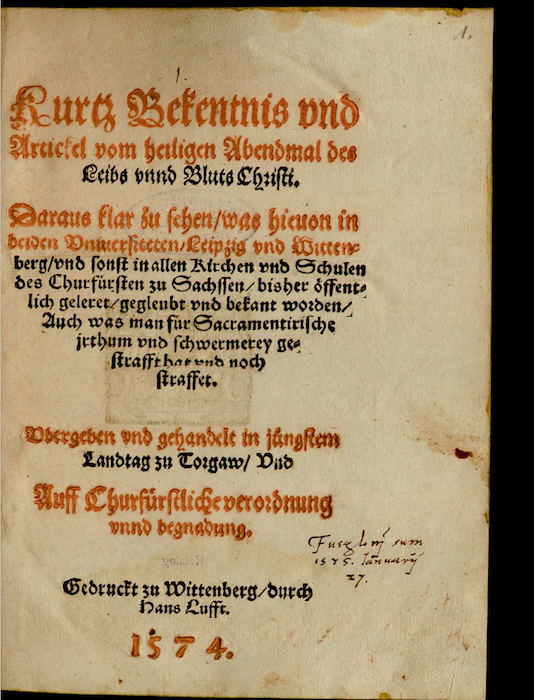 1.
1.
Kurtz Bekentnis vnd
Artickel vom heiligen Abendmal des
Leibs vnnd Bluts Christi.
Daraus klar zu sehen/was hieuon in
beiden Vniuersiteten/Leipzig vnd Witten-
berg/vnd sonst in allen Kirchen vnd Schulen
des Churfürsten zu Sachssen/bisher öffent-
lich geleret/gegleubt vnd bekant worden/
Auch was man für Sacramentirische
jrthum vnd schwermerey ge-
strafft hat vnd noch
straffet.
Vbergeben vnd gehandelt in jüngstem
Landtag zu Torgaw/ Vnd
Auff Churfürstliche verordnung
vnnd begnadung.
sum
1575. Januarij
27.
Gedruckt zu Wittenberg/durch
Hans Lufft.
1574.